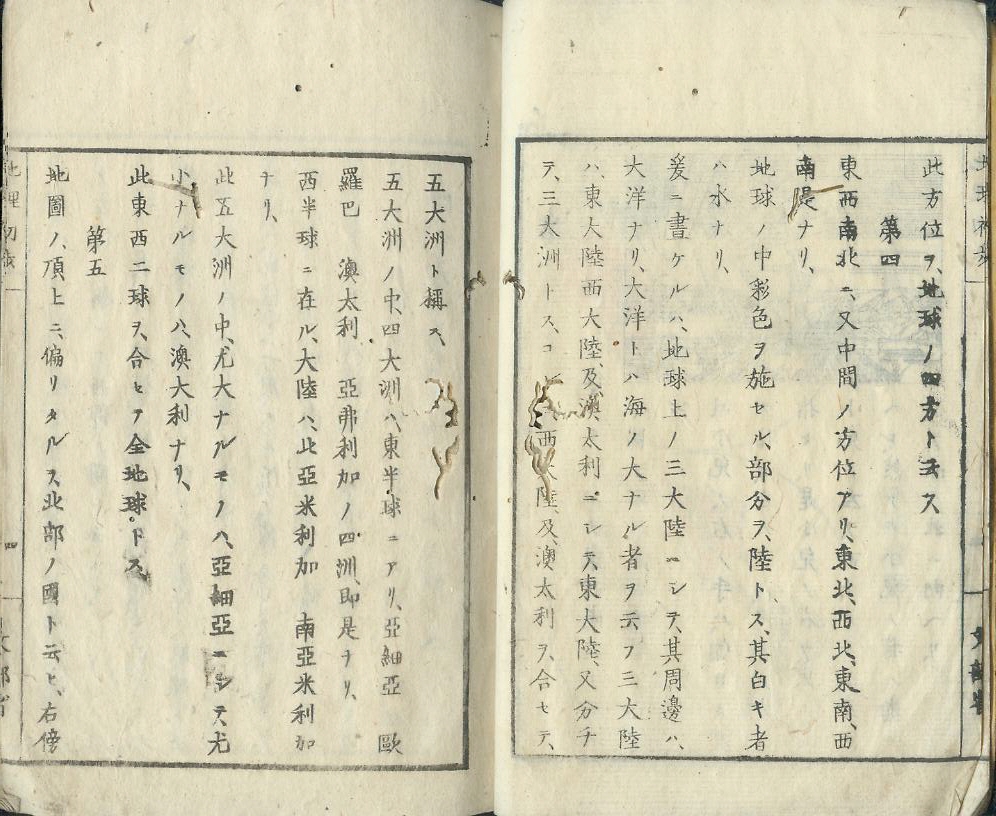 此方位ヲ、地球ノ四方ト云ス
第四
東西南北ニ、又中間ノ方位アリ、東北、西北、東南、西
南是ナリ、
地球ノ中彩色ヲ施セル、部分ヲ、陸トス、其白キ者
ハ水ナリ、
爰ニ書ケルハ、地球上ノ三大陸ニシテ、其周邊ハ、
大洋ナリ、大洋トハ海ノ大ナル者ヲ云フ三大陸
ハ、東大陸西大陸、及、澳太利ニシテ、東大陸、又分チ
テ、三大洲トス、コ 西 陸、及、澳太利ヲ、合セテ、
五大洲ト稱ス、
五大洲ノ中、四大洲ハ、東半球ニアリ、亞細亞 歐
羅巴 澳太利 亞弗利加ノ四洲、即是ナリ、
西半球ニ在ル、大陸ハ、北亞米利加 南亞米利加
ナリ、
此五大洲ノ中、尤大ナルモノハ、亞細亞ニシテ、尤
小ナルモノハ、澳大利ナリ、
此東西二球ヲ、合セテ全地球トス
第五
地圖ノ、頂上ニ、偏リタルヲ北部ノ國ト云ヒ、右傍
地理初歩
四
文部省